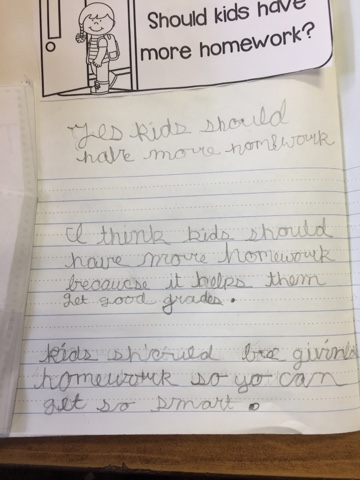 Should kids have
more homework?
Yes kids should
have more homework
I think kids should
have more homework
because it helps them
get good grades.
kids should be givin
homework so yo can
get so smart.